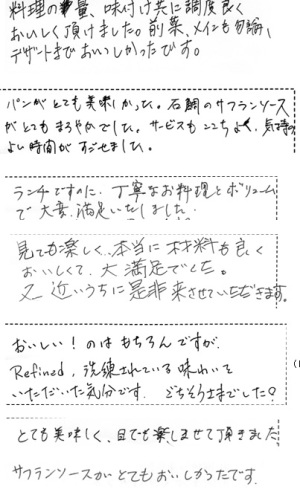 料理の量、味付け共に調度良く
おいしく頂けました。前菜、メインも勿論、
デザートまでおいしかったです。
パンがとても美味しかった。石鯛のサフランソース
がとてもまろやかでした。サービスもここちよく、気持の
よい時間がすごせました。
ランチですのに、丁寧なお料理とボリューム
で大変満足いたしました。
見ても楽しく、本当に材料も良く
おいしくて、大満足でした。
又、近いうちに是非来させていただきます。
おいしい!のはもちろんですが、
Refined, 洗練されている味わいを
いただいた気分です。ごちそうさまでした♡
とても美味しく、目でも楽しませて頂きました
サフランソースがとてもおいしかったです。